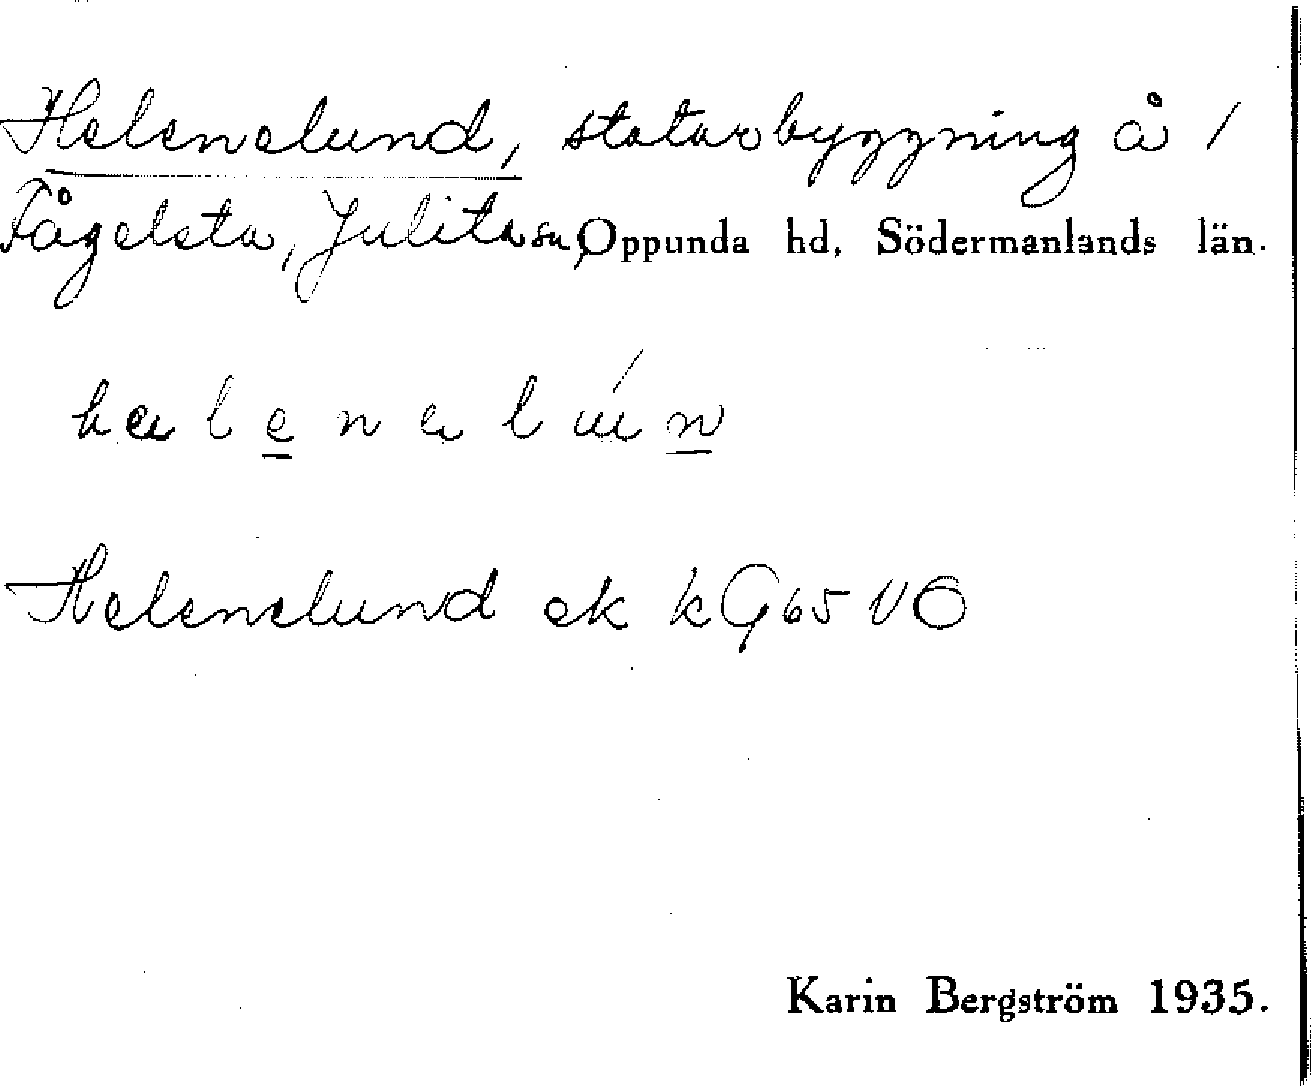 Helenelund, statarbyggning å /
Fågelsta, Julita sn, Oppunda hd, Södermanlands län.
Helenelund ek
Karin Bergström 1935.